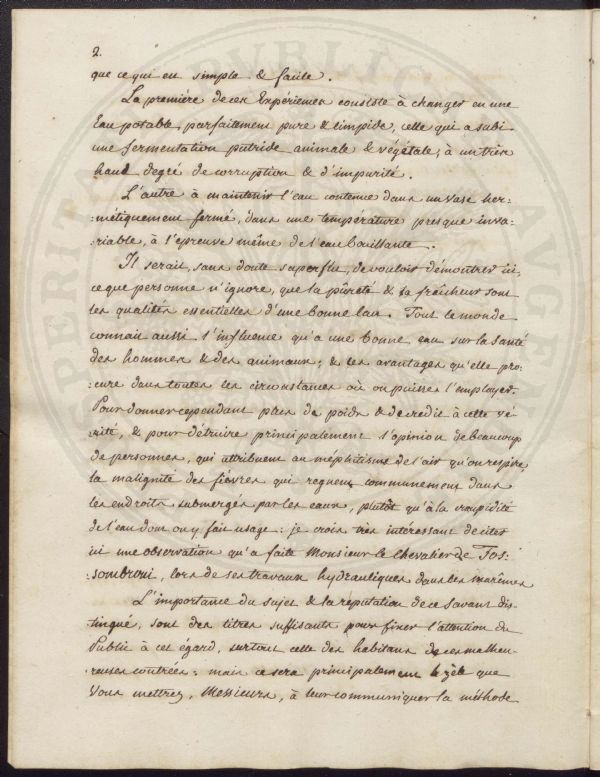 2.
que ce qui est simple & facile.
La première de ces Expériences consiste à changer en une
Eau potable, parfaitement pure & limpide, celle qui a subi
une fermentation putride animale & végétale, à un très
haut degré de corruption & d'impurité.
L'autre à maintenir l'eau contenue dans un vase her-
:métiquement fermé, dans une température presque inva:
:riable, à l'épreuve même de l'eau bouillante.
Il serait, sans doute superflu, de vouloir démontrer ici,
ce que personne n'ignore, que la pûreté & la fraîcheur sont
les qualités essentielles d'une bonne Eau. Tout le monde
connait aussi l'influence qu'a une bonne eau sur la santé
des hommes & des animaux, & les avantages qu'elle pro:
:cure dans toutes les circonstances où on puisse l'employer.
Pour donner cependant plus de poids & de credit à cette vé
:rité, & pour détruire principalement l'opinion de beaucoup
de personnes, qui attribuent au méphitisme de l'air qu'on respire,
la malignité des fièvres qui regnent communement dans
les endroits submergés par les eaux, plutôt qu'à la
de l'eau dont on y fait usage: je crois très intéressant de citer
ici une observation qu'a faite Monsieur le Chevalier de Fos:
:sombroni, lors de ses travaux hydrauliques dans les marêmes
L'importance du sujet & la réputation de ce savant dis-
tingué, sont des titres suffisants pour fixer l'attention du
Public à cet égard, surtout celle des habitans de ces malheu-
reuses contrées: mais ce sera principalement le zèle que
Vous mettrez, Messieurs, à leur communiquer la méthode
PERI
PVBLIC
AVG